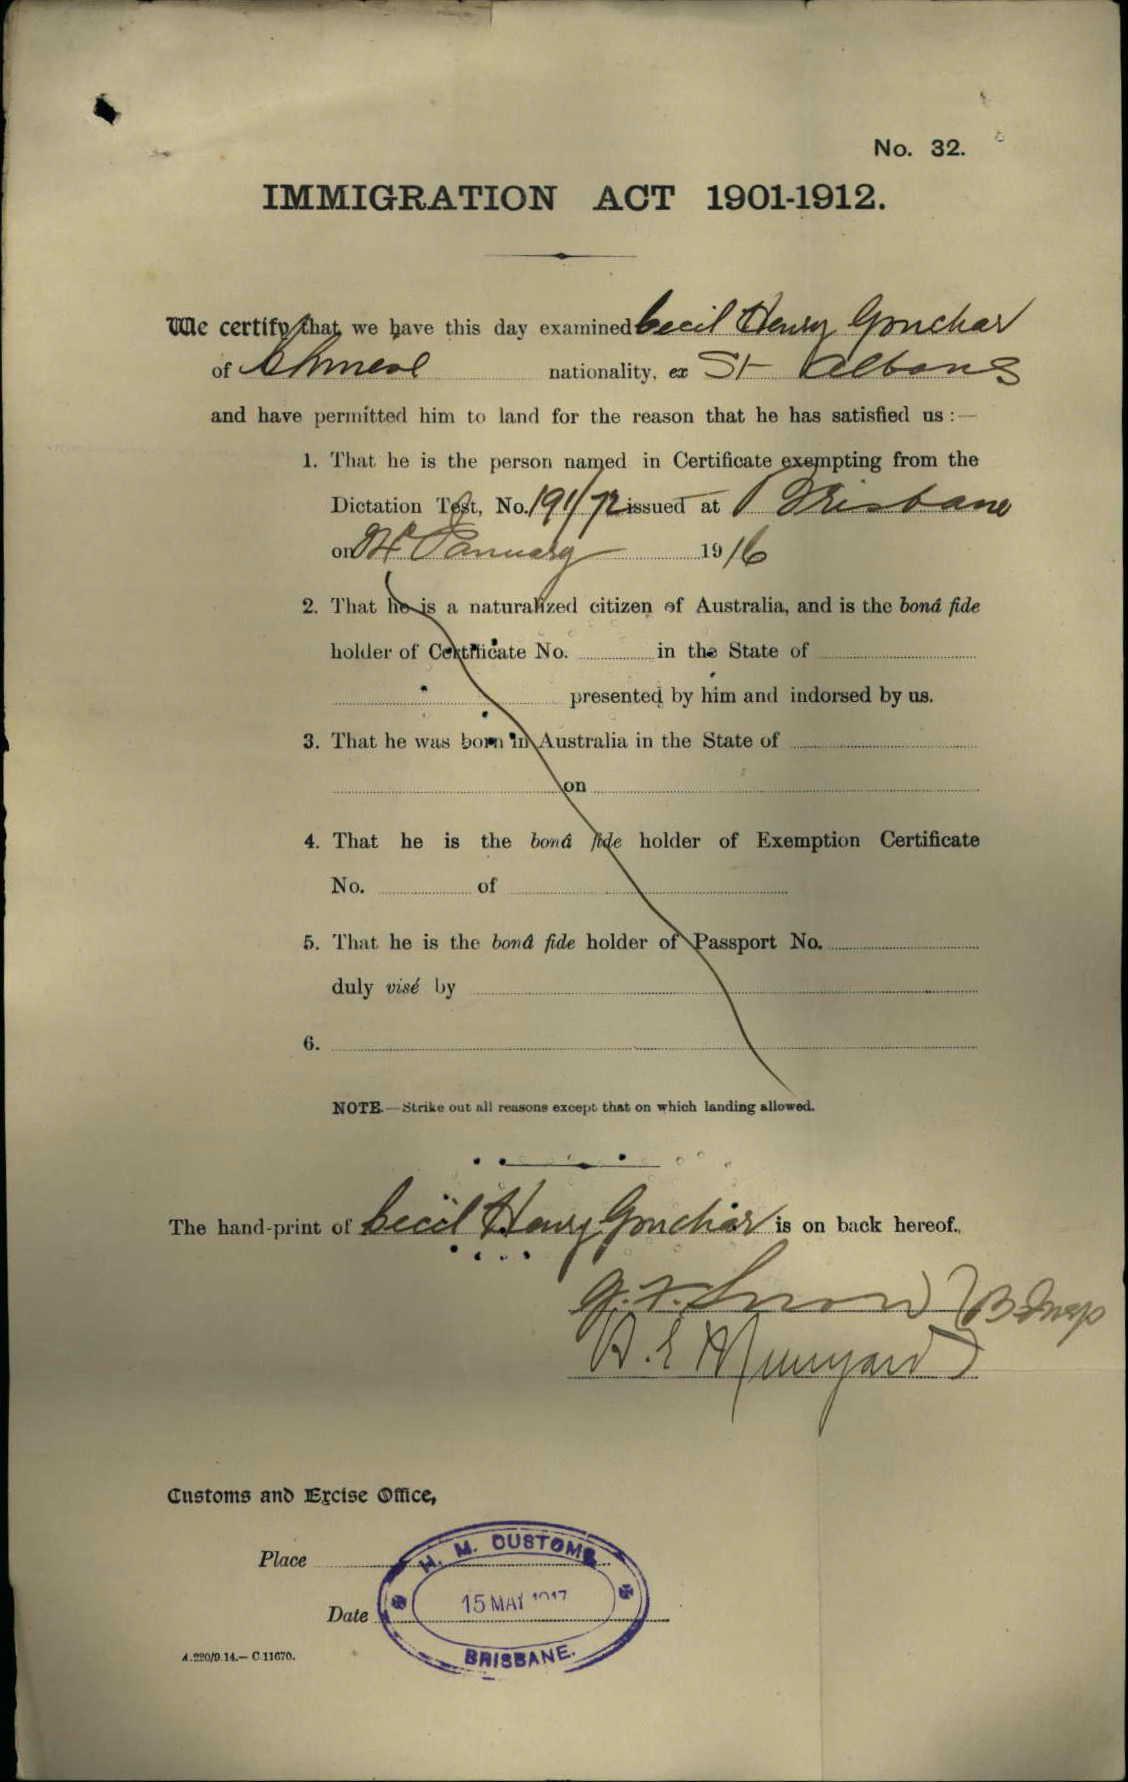 No. 32.
IMMIGRATION ACT 1901-1912.
We certify that we have this day examined Cecil Henry Gonchar
of nationality, ex St Albans
and have permitted him to land for the reason that he has satisfied us :—
1. That he is the person named in Certificate exempting from the
Dictation Test, No. 191/72 issued at Brisbane
on January 1916
2. That he is a naturalized citizen of Australia, and is the bonâ fide
holder of Certificate No. in the State of
presented by him and indorsed by us.
3. That he was born in Australia in the State of
on
4. That he is the bonâ fide holder of Exemption Certificate
No. of
5. That he is the bonâ fide holder of Passport No.
duly visé by
6.
NOTE.—Strike out all reasons except that on which landing allowed.
The hand-print of Cecil Henry Gonchar is on back hereof.
Customs and Excise Office,
Place
H. M. CUSTOMS
Date 15 MAY 1917
BRISBANE.
A.220/9.14.—C.11670.